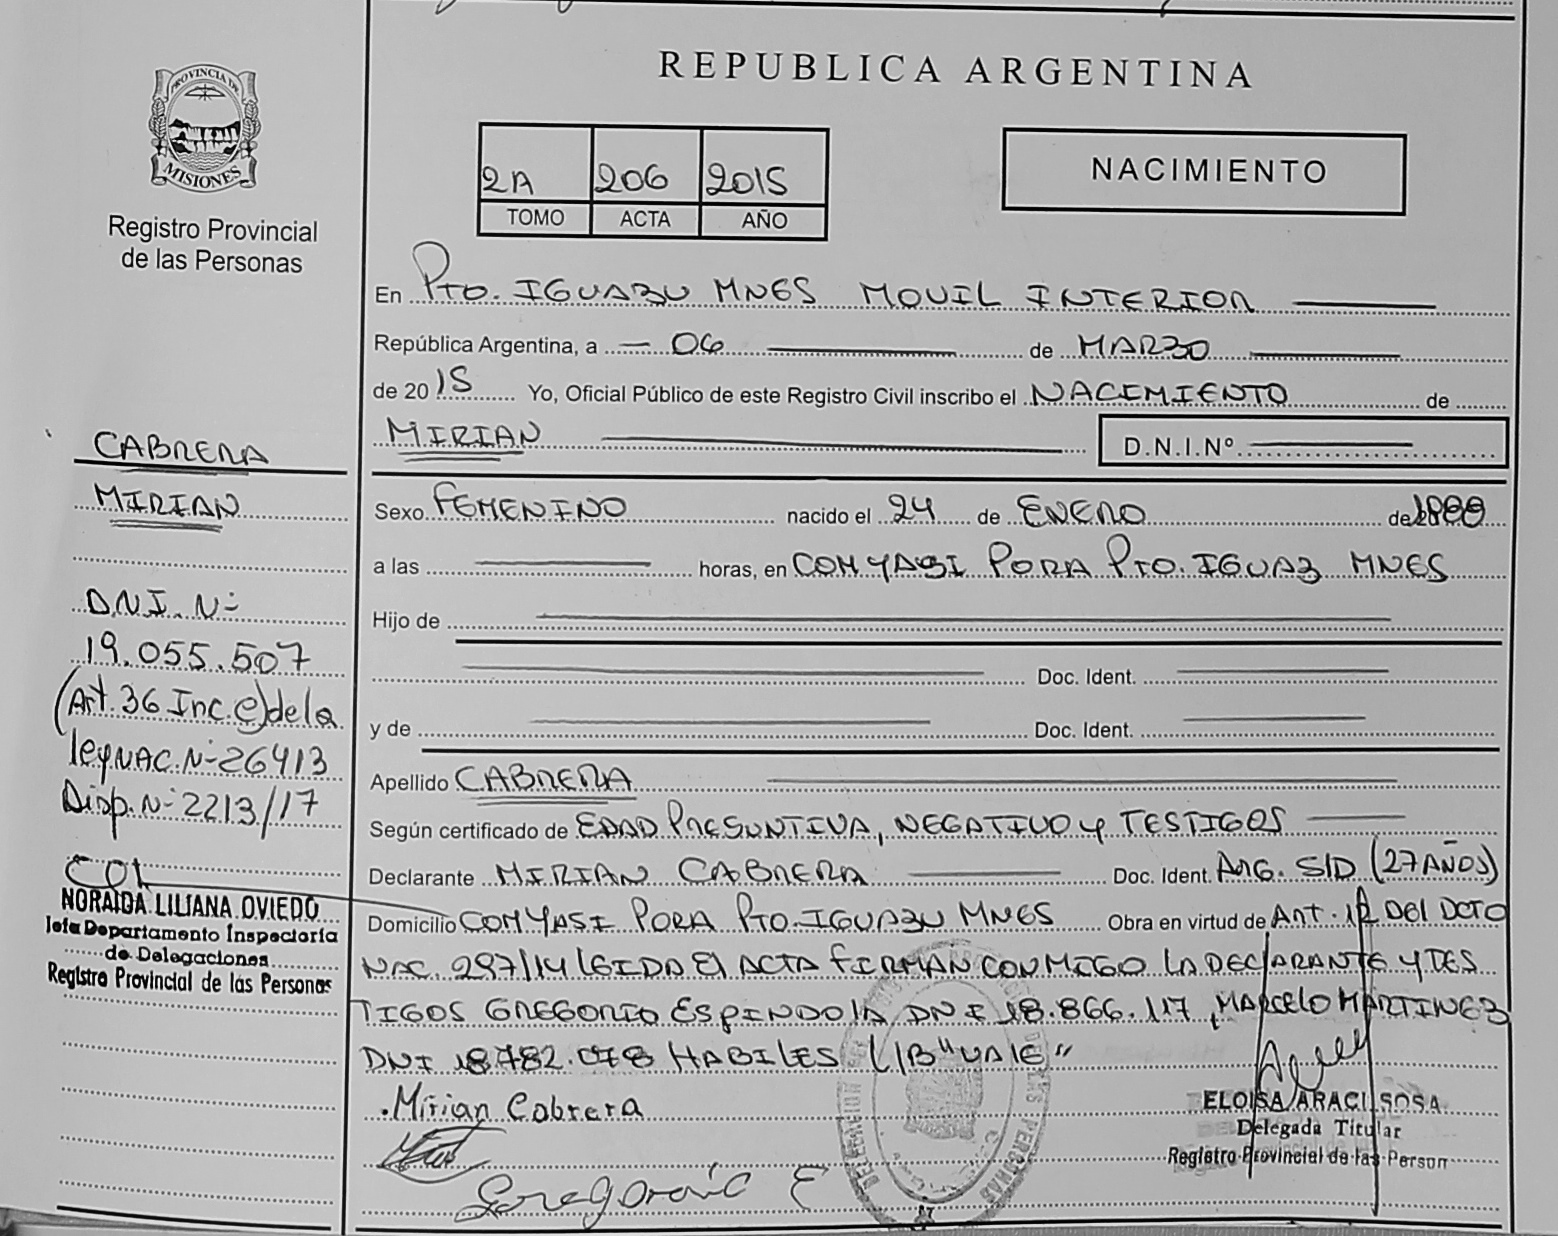 PROVINCIA DE
MISIONES
Registro Provincial
de las Personas
REPUBLICA ARGENTINA
2A 206 2015
TOMO ACTA AÑO
NACIMIENTO
En Pto. IGUAZU MNES MOVIL INTERIOR
República Argentina, a 06 de MARZO
de 2015 Yo, Oficial Público de este Registro Civil inscribo el NACIMIENTO de
MIRIAN
D.N.I.Nº
CABRERA
MIRIAN
DNI. Nº
19.055.507
(Art. 36 Inc. e) de la
ley NAC. Nº 26413
Disp. Nº 2213/17
NORAIDA LILIANA OVIEDO
Jefa Departamento Inspectoría
de Delegaciones
Registro Provincial de las Personas
Sexo FEMENINO nacido el 24 de ENERO de
a las horas, en COM YASI PORA PTO. IGUAZ MNES
Hijo de
Doc. Ident.
y de Doc. Ident.
Apellido CABRERA
Según certificado de EDAD PRESUNTIVA, NEGATIVO y TESTIGOS
Declarante MIRIAN CABRERA Doc. Ident. ARG. S/D (27 AÑOS)
Domicilio COM YASI PORA PTO. IGUAZU MNES Obra en virtud de Art. 12 DEl DCTO
NAC. 297/14 lEIDA El ACTA FIRMAN CONMIGO lA DEClARANTE Y TES
TIGOS GREGORIO ESPINDOlA DNI 18.866.117, MARCELO MARTINEZ
DNI 18.782.078 HABILES L/B "VAlE"
Mirian Cabrera
Gregorio E
ELOISA ARACI SOSA
Delegada Titular
Registro Provincial de las Person